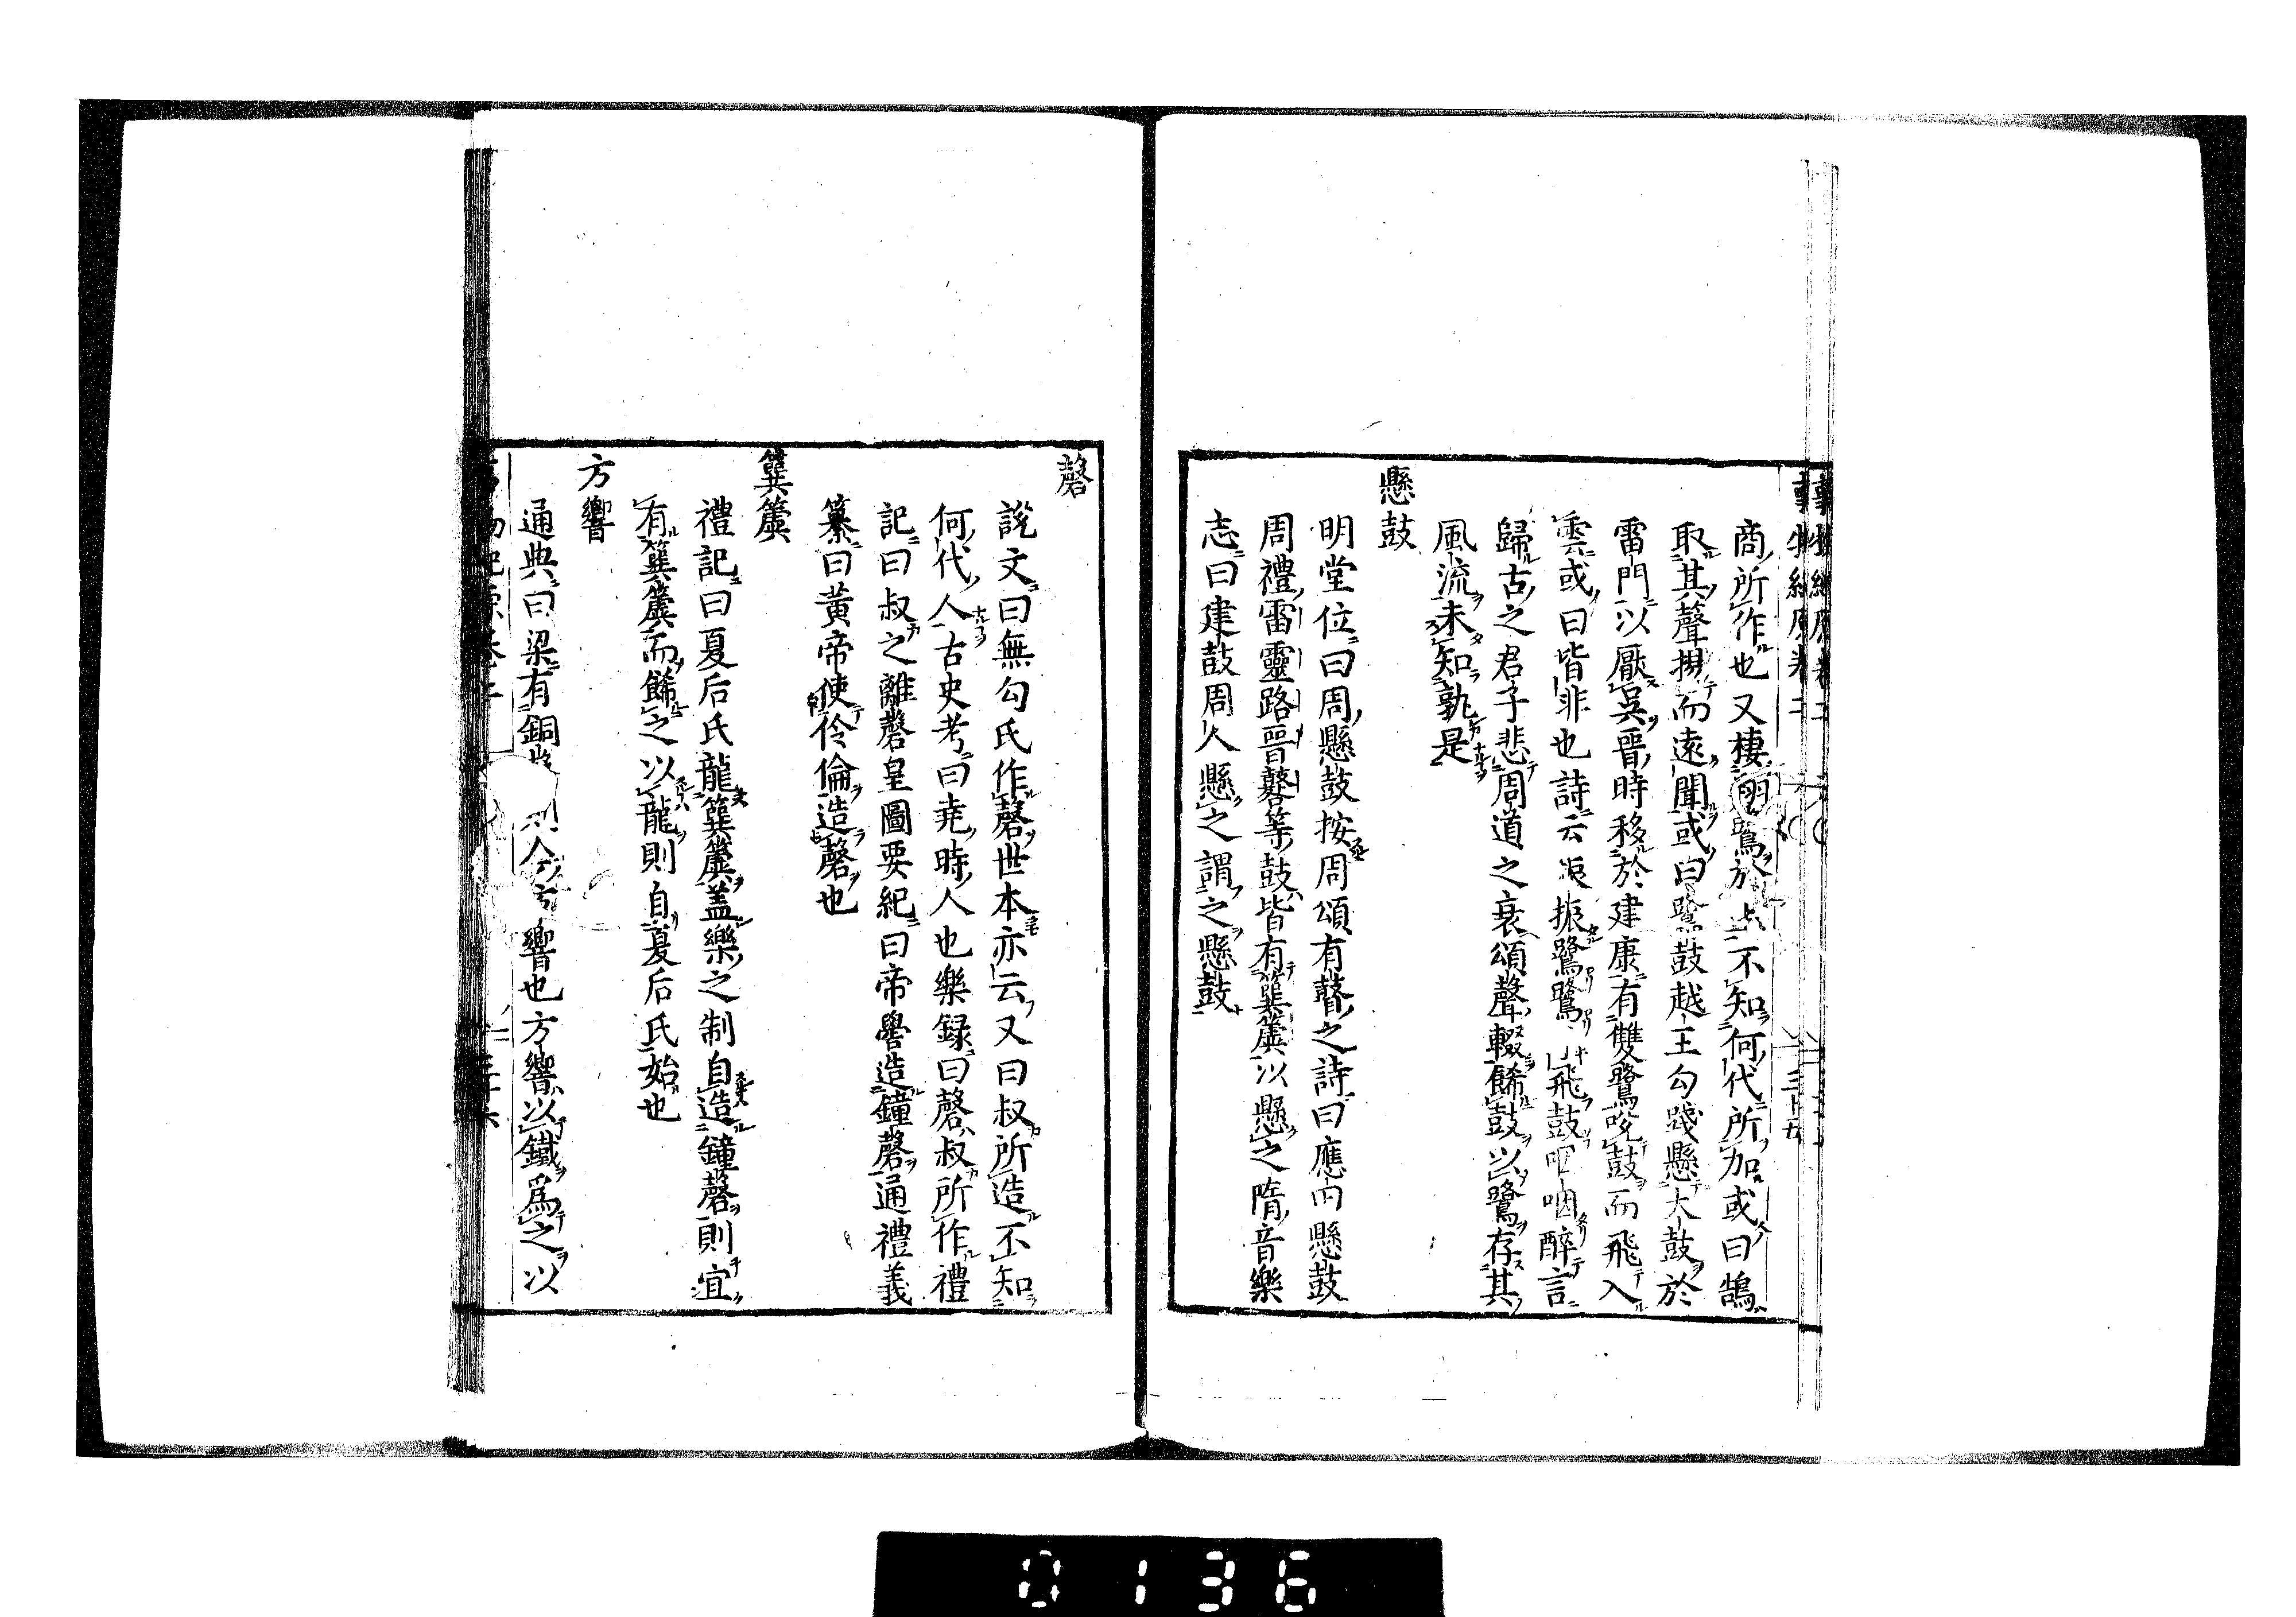 商所作也又棲翔鷺於 不知何代所加或曰鵠
取其聲揚而遠聞或曰鷺鼓越王勾踐懸大鼓於
雷門以厭吳晉時移於建康有雙鷺咬鼓而飛入
雲或曰皆非也詩云振振鷺鷺 飛鼓咽咽醉言
歸古之君子悲周道之衰頌聲輟餙鼓以鷺存其
風流未知孰是
懸鼓
明堂位曰周懸鼓按周頌有瞽之詩曰應田懸鼓
周禮雷靈路晉鼛等鼓皆有簨簴以懸之隋音樂
志曰建鼓周人懸之謂之懸鼓
磬
說文曰無勾氏作磬世本亦云又曰叔所造不知
何代人古史考曰堯時人也樂録曰磬叔所作禮
記曰叔之離磬皇圖要紀曰帝嚳造鐘磬通禮義
纂曰黃帝使伶倫造磬也
簨簴
禮記曰夏后氏龍簨簴盖樂之制自造鐘磬則宜
有簨簴而餙之以龍則自夏后氏始也
方響
通典曰梁有銅 方響也方響以鐵爲之以
0136